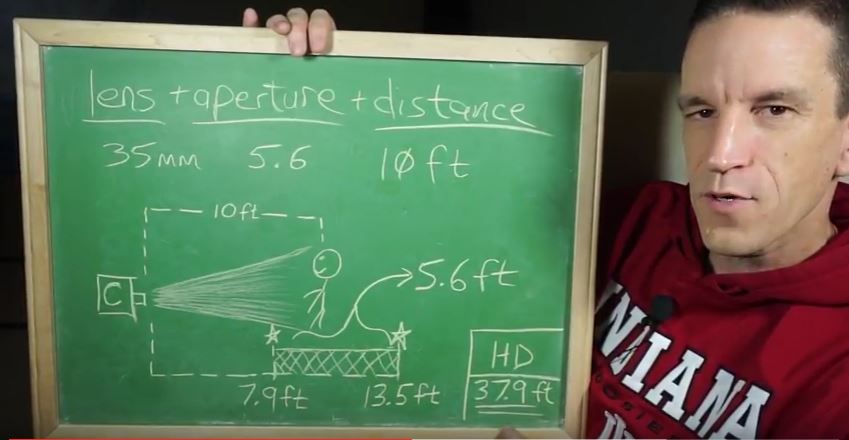 lens + aperture + distance
35mm 5.6 10ft
10ft
C
5.6ft
HD
37.9ft
7.9ft 13.5ft
INDIANA